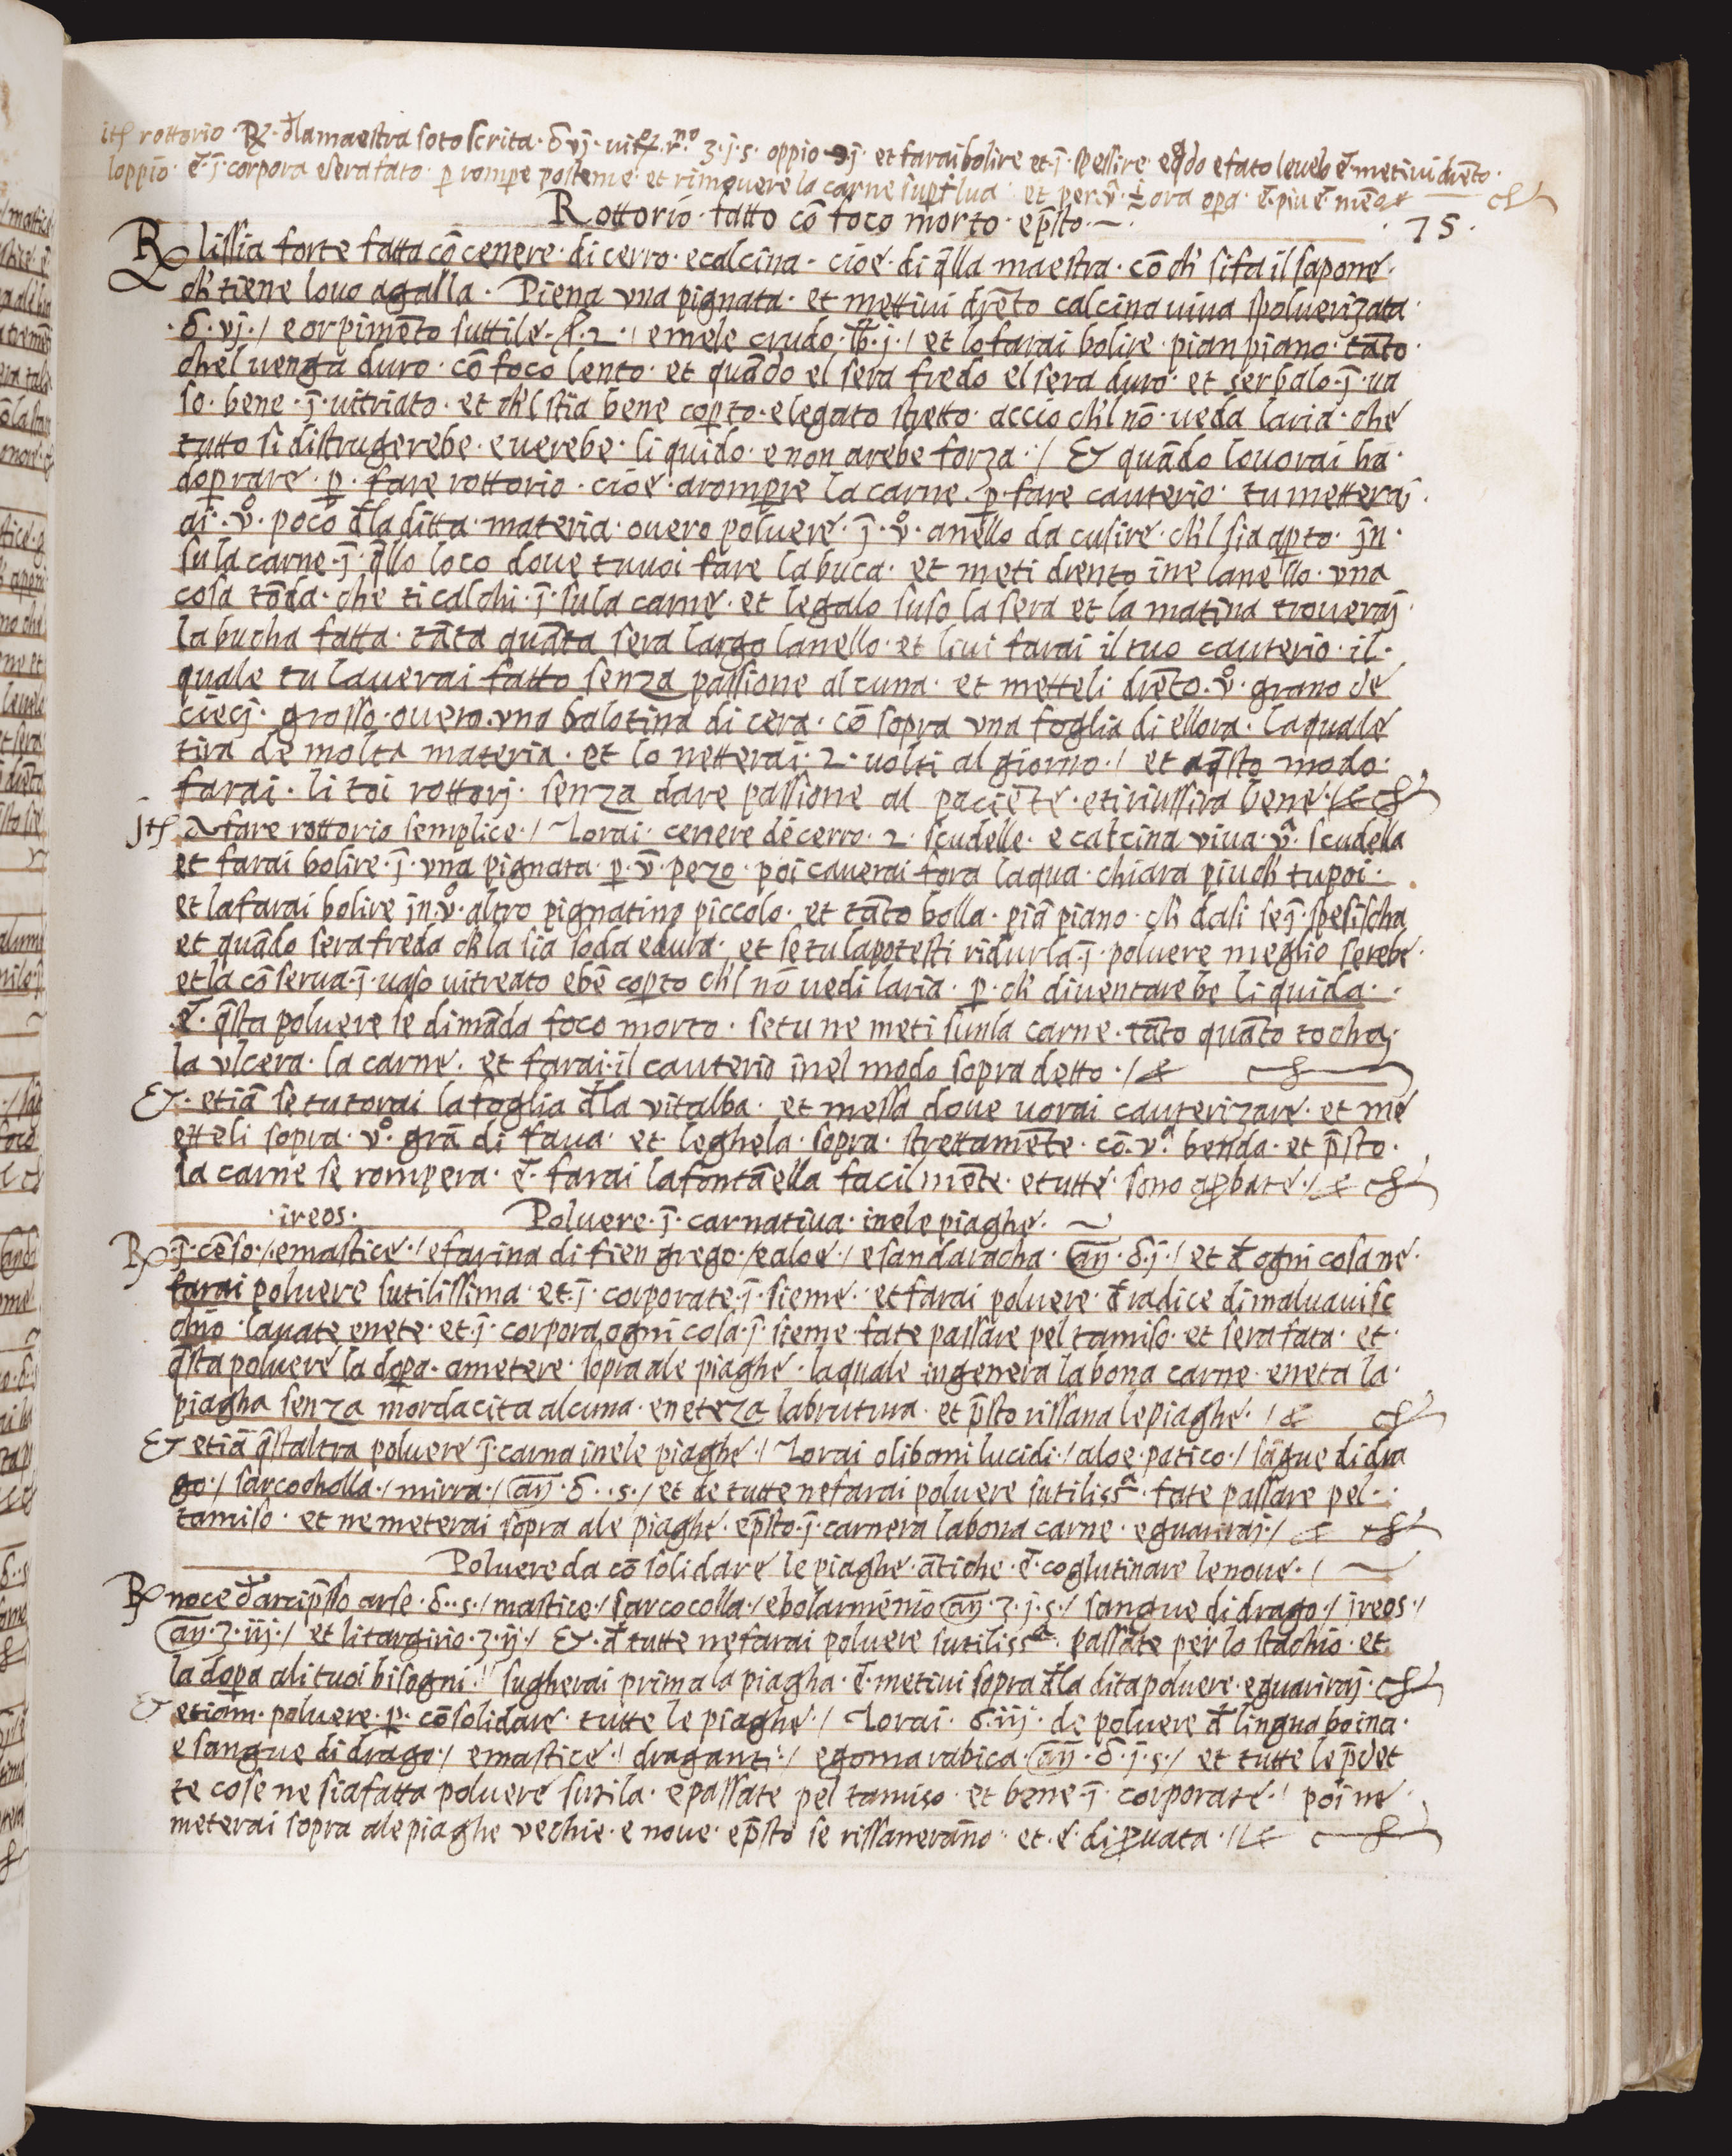 itẽ rottorio · ℞ · đla maestra soto scrita · ʒ̃ vj · uit.° r.no ʒ · j · s · oppio ℈j · et farai bolire et · ĩ · spessire · e q̃do e fato levelo ē metivi drẽto ·
loppio · ē · ĩ · corpora e sera fato · ꝑ rompere posteme · et rimovere la carne supflua · et per · v̄ · ora opa · ē · piu ē mẽo
Rottorio · fatto cõ foco morto · ep̃sto · 75 ·
℞ lissia forte fatta cõ cenere · di cerro · e calcina · cioe · di q̃lla maestra · cõ ch' si fa il sapone ·
ch' tiene lovo agalla · Piena vna pignata · et mettivi drẽto calcina viva spoluerizata ·
· ʒ̃ · vj · / e orpimẽto suttile · ʒ̃ · 2 · / e mele crudo · lb · j · / et lo farai bolire · pian piano · tãto ·
chel venga duro · cõ foco lento · et quãdo el sera fredo el sera duro · et serbalo · ĩ · va
so · bene · ĩ · vitriato · et ch'l stia bene copto · e legato stretto · accio ch'l nõ · veda laria · che
tutto si distrugerebe · e verebe · liquido · e non arebe forza · / Et quãdo lo vorai ha ·
doprare · ꝑ · fare rottorio · cioe · a rompere la carne · ꝑ fare cauterio · tu metteraj ·
ai · v° · poco đla ditta · materia · overo poluere · ĩ · v° · anello da cusire · ch'l sia apto · jn ·
su la carne · ĩ · q̃llo loco dove tu voi fare la buca · et meti drento ine lanello · vna
cosa tõda · che ti calchi · ĩ · su la carne · et legalo suso la sera et la matina troveraj ·
la bucha fatta · tãta quãta sera largo lanello · et livi farai il tuo cauterio · il ·
quale tu laverai fatto senza passione alcuna · et metteli drẽto · v° · grano de
cieci · grosso · overo · vna balotina di cera · cõ sopra vna foglia di ellora · la quale
tira de molta materia · et lo netterai · 2 · volti al giorno · / et a q̃sto modo ·
farai · li toi rottorj · senza dare passione al paciẽte · et i riussira bene · / &
jtẽ a fare rottorio semplice · / Torai · cenere de cerro · 2 · scudelle · e calcina viva · vª · scudella
et farai bolire · ĩ · vna pignata · ꝑ · v̄ · pezo · poi caverai fora laqua · chiara piu ch' tu poi ·
et la farai bolire jn · v° · altro pignatino piccolo · et tãto bolla · piã piano · ch' da si se ĩ · spesischa
et quãdo sera freda ch' la sia soda e dura · et se tu la potesti ridurla · ĩ · poluere meglio serebe ·
et la cõserva · ĩ · vaso vitreato e bẽ copto ch'l nõ vedi laria · ꝑ · ch' diventarebe liquida ·
ē · q̃sta poluere se dimãda foco morto · se tu ne meti sun la carne · tãto quãto tochaj ·
la vlcera · la carne · et farai · il cauterio inel modo sopra detto · / &
Et · etiã se tu torai la foglia đla vitalba · et messa dove vorai cauterizare · et me
etteli sopra · v° · grã di fava · et leghela · sopra · strettamẽte · cõ · vª · benda · et p̃sto ·
la carne se rompera · ē · farai la fontãella facilmẽte · e tutte · sono aꝓbate · / &
· ireos · Poluere · ĩ · carnativa · inele piaghe ·
℞ ĩ · cẽso · / e mastice · / e farina di fien grego · / e aloe · / e sandaracha · añ · ʒ̃ · j · / et đ ogni cosa ne ·
farai poluere sutilissima · et · ĩ · corporate · ĩ · sieme · et farai poluere · đ radice di malvavisc
chio · lavate e nete · et · ĩ · corpora ogni cosa · ĩ · sieme · fate passare pel tamiso · et sera fata · et ·
q̃sta poluere la dopa · a metere · sopra ale piaghe · la quale ingenera la bona carne · e neta la ·
piagha senza mordacita alcuna · e neteza la brutura · et p̃sto rissana le piaghe · / &
Et etiã q̃staltra poluere ĩ · carna inele piaghe · / Torai olibani lucidi · / aloe · patico · / sãgue di dra
go · / sarcocholla · / mirra · / añ · ʒ̃ · · s · / et de tutte ne farai poluere sutilissª · fate passare pel ·
tamiso · et ne meterai sopra ale piaghe · ep̃sto · ĩ · carnera la bona carne · e guariraj · / &
Poluere da cõsolidare le piaghe · ãtiche · ē · coglutinare le nove · /
℞ noce đ arcip̃sso arse · ʒ̃ · · s · / mastice · / sarcocolla · / e bolarmenio añ · ʒ · j · s · / sangue di drago · / jreos · /
añ · ʒ · iij · / et litargirio · ʒ · ij · / Et · đ tutte ne farai poluere sutilissª · passate per lo stachio · et
la dopa ali tuoi bisogni · // sugherai prima la piagha · ē · metivi sopra đla dita poluere · e guariraj ·
Et etiam · poluere · ꝑ · cõsolidare · tutte le piaghe · / Torai · ʒ̃ · iij · de poluere đ lingua boina ·
e sangue di drago · / e mastice · / draganti · / e goma rabica · añ · ʒ̃ · j · s · / et tutte le p̃det
te cose ne sia fatta poluere sutila · e passate pel tamiso · et bene · ĩ · corporate · / poi ne ·
meterai sopra ale piaghe vechie · e nove · ep̃sto se rissanerãno · et · e · di ꝓvata · / &